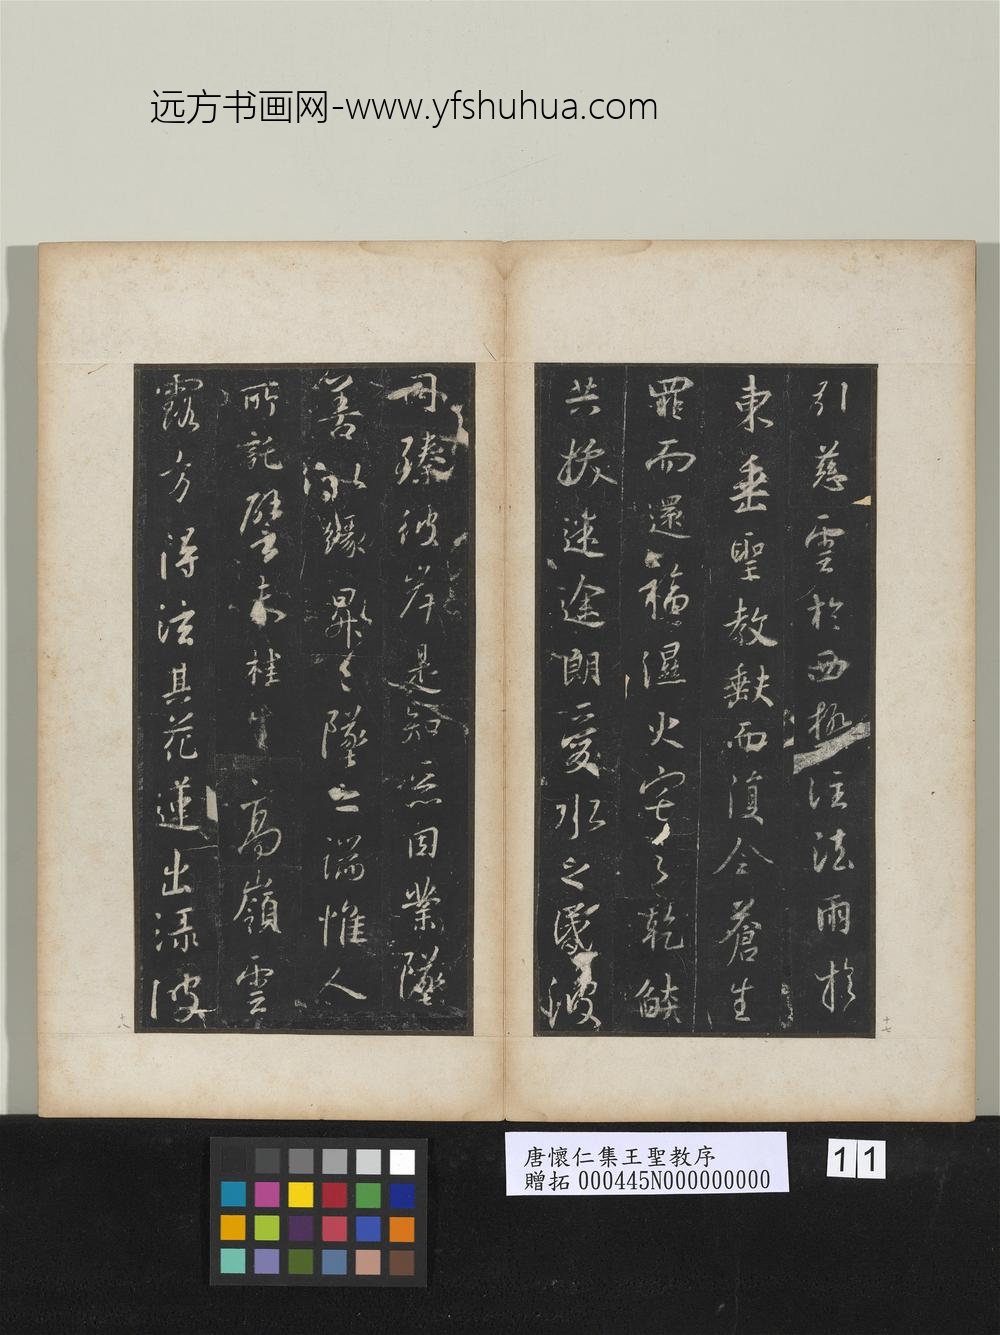 远方书画网-www.yfshuhua.com
引慈雲於西極注法雨於
東垂聖教缺而復全蒼生
罪而還福濕火宅之乾燄
共拔迷途朗愛水之昏波
同臻彼岸是知惡因業墜
善以緣昇昇墜之端惟人
所託譬夫桂生高嶺雲
露方得泫其花蓮出淥波
十七
十八
唐懷仁集王聖教序
贈拓 000445N000000000
11